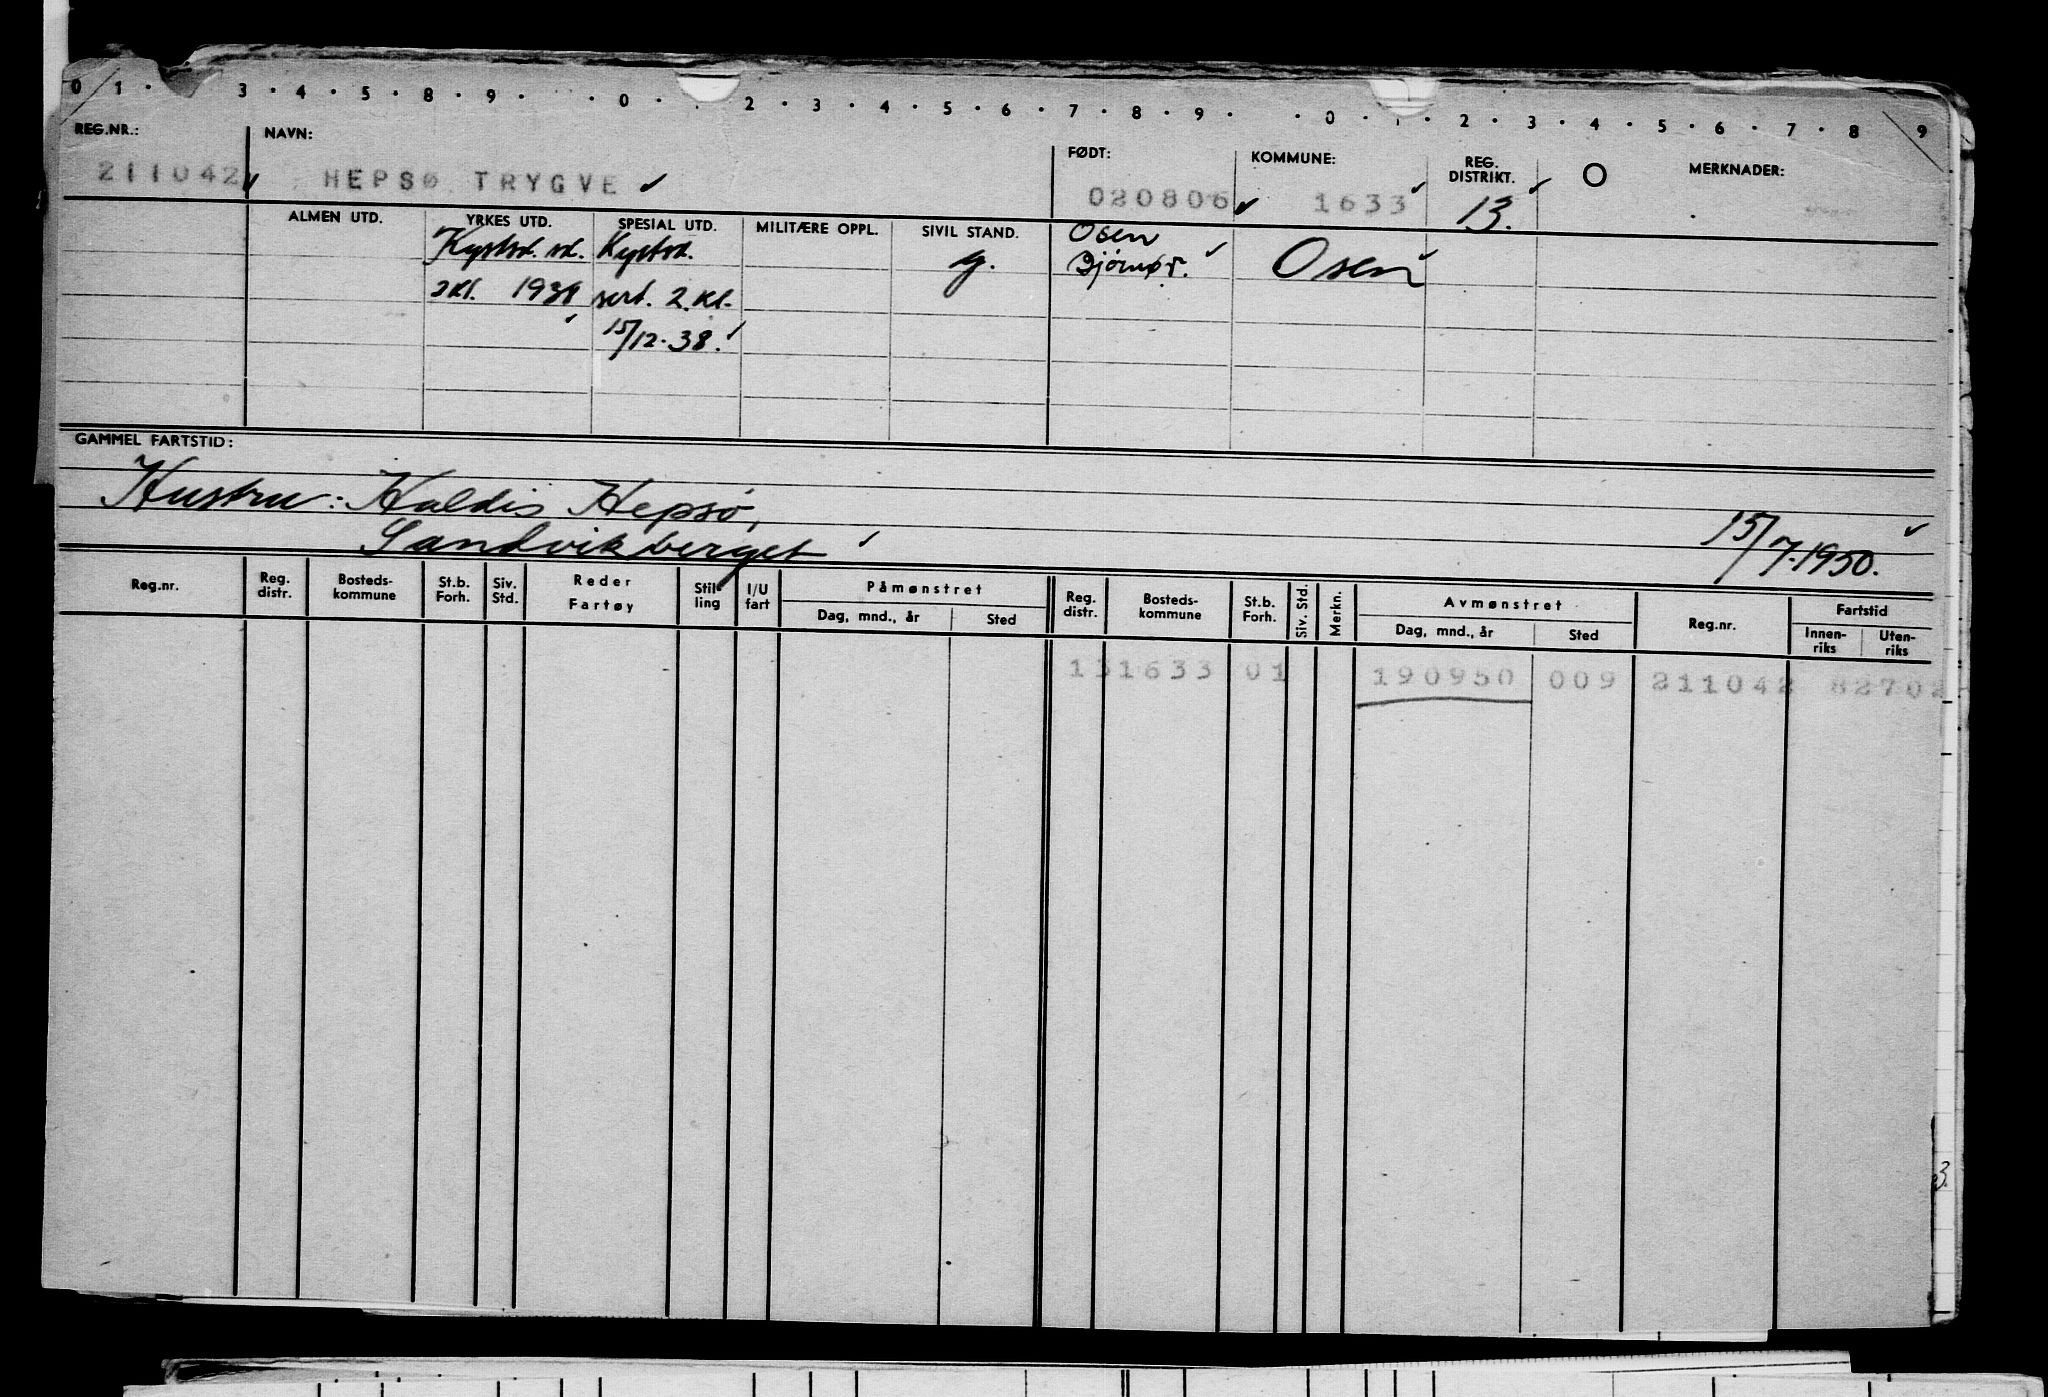 0 1 · 3 · 4 · 5 · 8 · 9 · · 0 · 2 · 3 · 4 · 5 · 6 · 7 · 8 · 9 · · 0 · 1 · 2 · 3 · 4 · 5 · 6 · 7 · 8 9
REG.NR.: NAVN: FØDT: KOMMUNE: REG. DISTRIKT. O MERKNADER:
211042 HEPSØ TRYGVE 020806 1633 13.
ALMEN UTD. YRKES UTD. SPESIAL UTD. MILITÆRE OPPL. SIVIL STAND.
Kystsk. sk. Kystsk. g. Osen Osen
2 kl. 1938 sert. 2. kl. Bjørnør.
15/12-38.
GAMMEL FARTSTID:
Hustru: Haldis Hepsø,
Sandvikberget 15/7-1950.
Reg.nr. Reg. distr. Bosteds-kommune St.b. Forh. Siv. Std. Reder Fartøy Stil-ling I/U fart Påmønstret Reg. distr. Bosteds-kommune St.b. Forh. Siv. Std. Merkn. Avmønstret Reg.nr. Fartstid
Dag, mnd., år Sted Dag, mnd., år Sted Innen-riks Uten-riks
131633 01 190950 009 211042 82702
3.